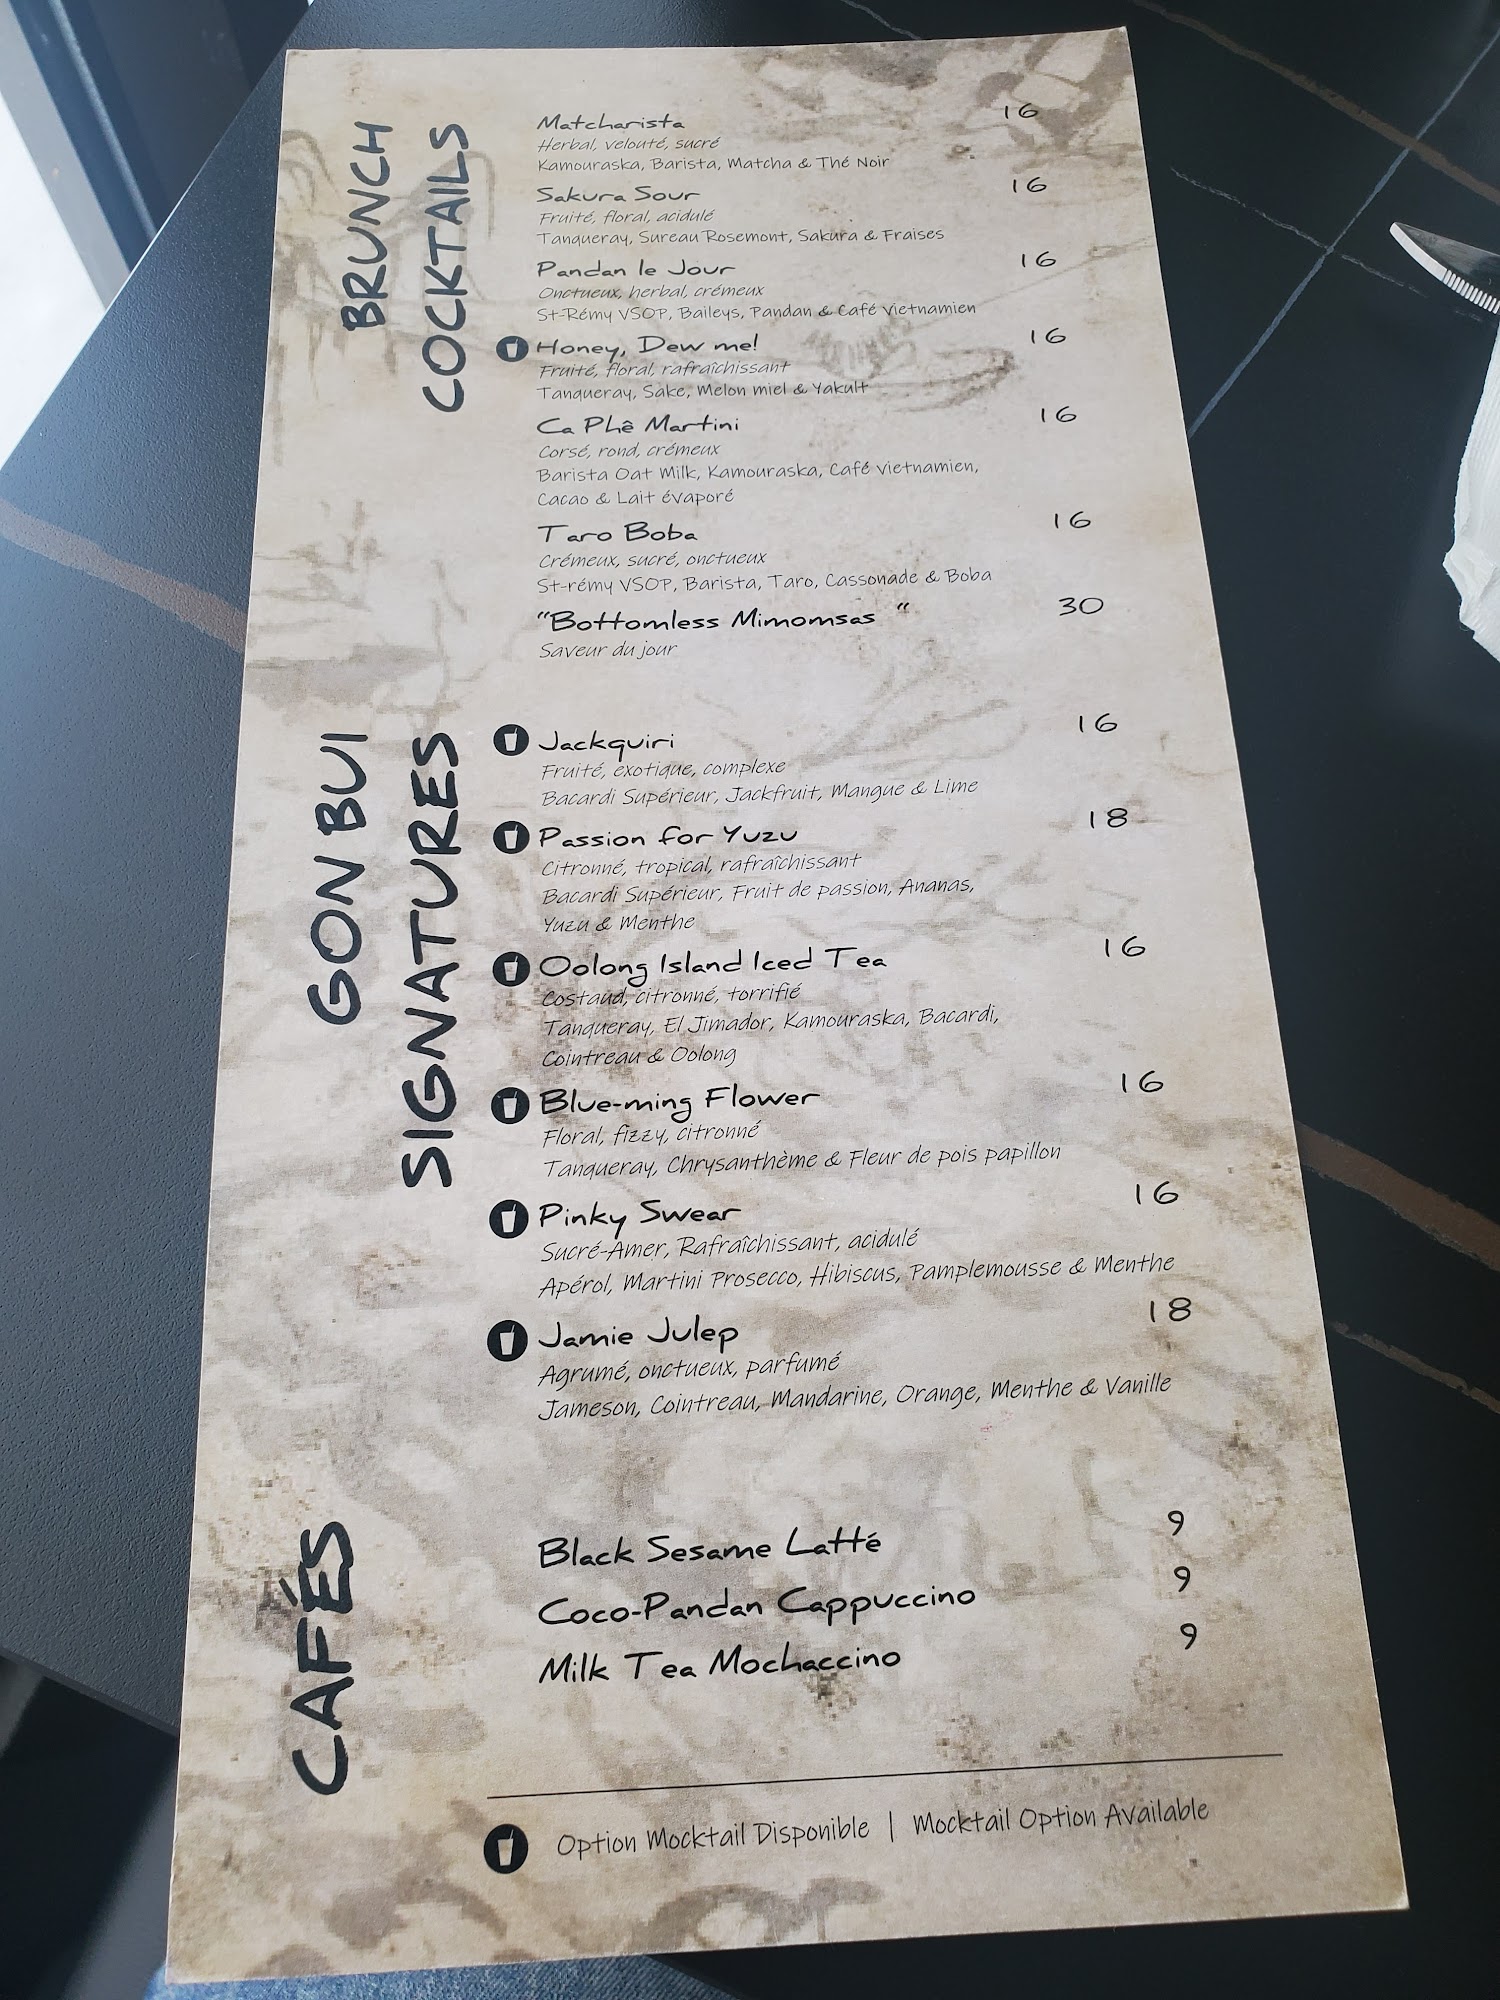 BRUNCH
COCKTAILS
Matcharista 16
Herbal, velouté, sucré
Kamouraska, Barista, Matcha & Thé Noir
Sakura Sour 16
Fruité, floral, acidulé
Tanqueray, Sureau Rosemont, Sakura & Fraises
Pandan le Jour 16
Onctueux, herbal, crémeux
St-Rémy VSOP, Baileys, Pandan & Café vietnamien
Honey, Dew me! 16
Fruité, floral, rafraîchissant
Tanqueray, Sake, Melon miel & Yakult
Ca Phê Martini 16
Corsé, rond, crémeux
Barista Oat Milk, Kamouraska, Café vietnamien,
Cacao & Lait évaporé
Taro Boba 16
Crémeux, sucré, onctueux
St-rémy VSOP, Barista, Taro, Cassonade & Boba
“Bottomless Mimomsas “ 30
Saveur du jour
GON BUI
SIGNATURES
Jackquiri 16
Fruité, exotique, complexe
Bacardi Supérieur, Jackfruit, Mangue & Lime
Passion for Yuzu 18
Citronné, tropical, rafraîchissant
Bacardi Supérieur, Fruit de passion, Ananas,
Yuzu & Menthe
Oolong Island Iced Tea 16
Costaud, citronné, torrifié
Tanqueray, El Jimador, Kamouraska, Bacardi,
Cointreau & Oolong
Blue-ming Flower 16
Floral, fizzy, citronné
Tanqueray, Chrysanthème & Fleur de pois papillon
Pinky Swear 16
Sucré-Amer, Rafraîchissant, acidulé
Apérol, Martini Prosecco, Hibiscus, Pamplemousse & Menthe
Jamie Julep 18
Agrumé, onctueux, parfumé
Jameson, Cointreau, Mandarine, Orange, Menthe & Vanille
CAFÉS
Black Sesame Latté 9
Coco-Pandan Cappuccino 9
Milk Tea Mochaccino 9
Option Mocktail Disponible | Mocktail Option Available